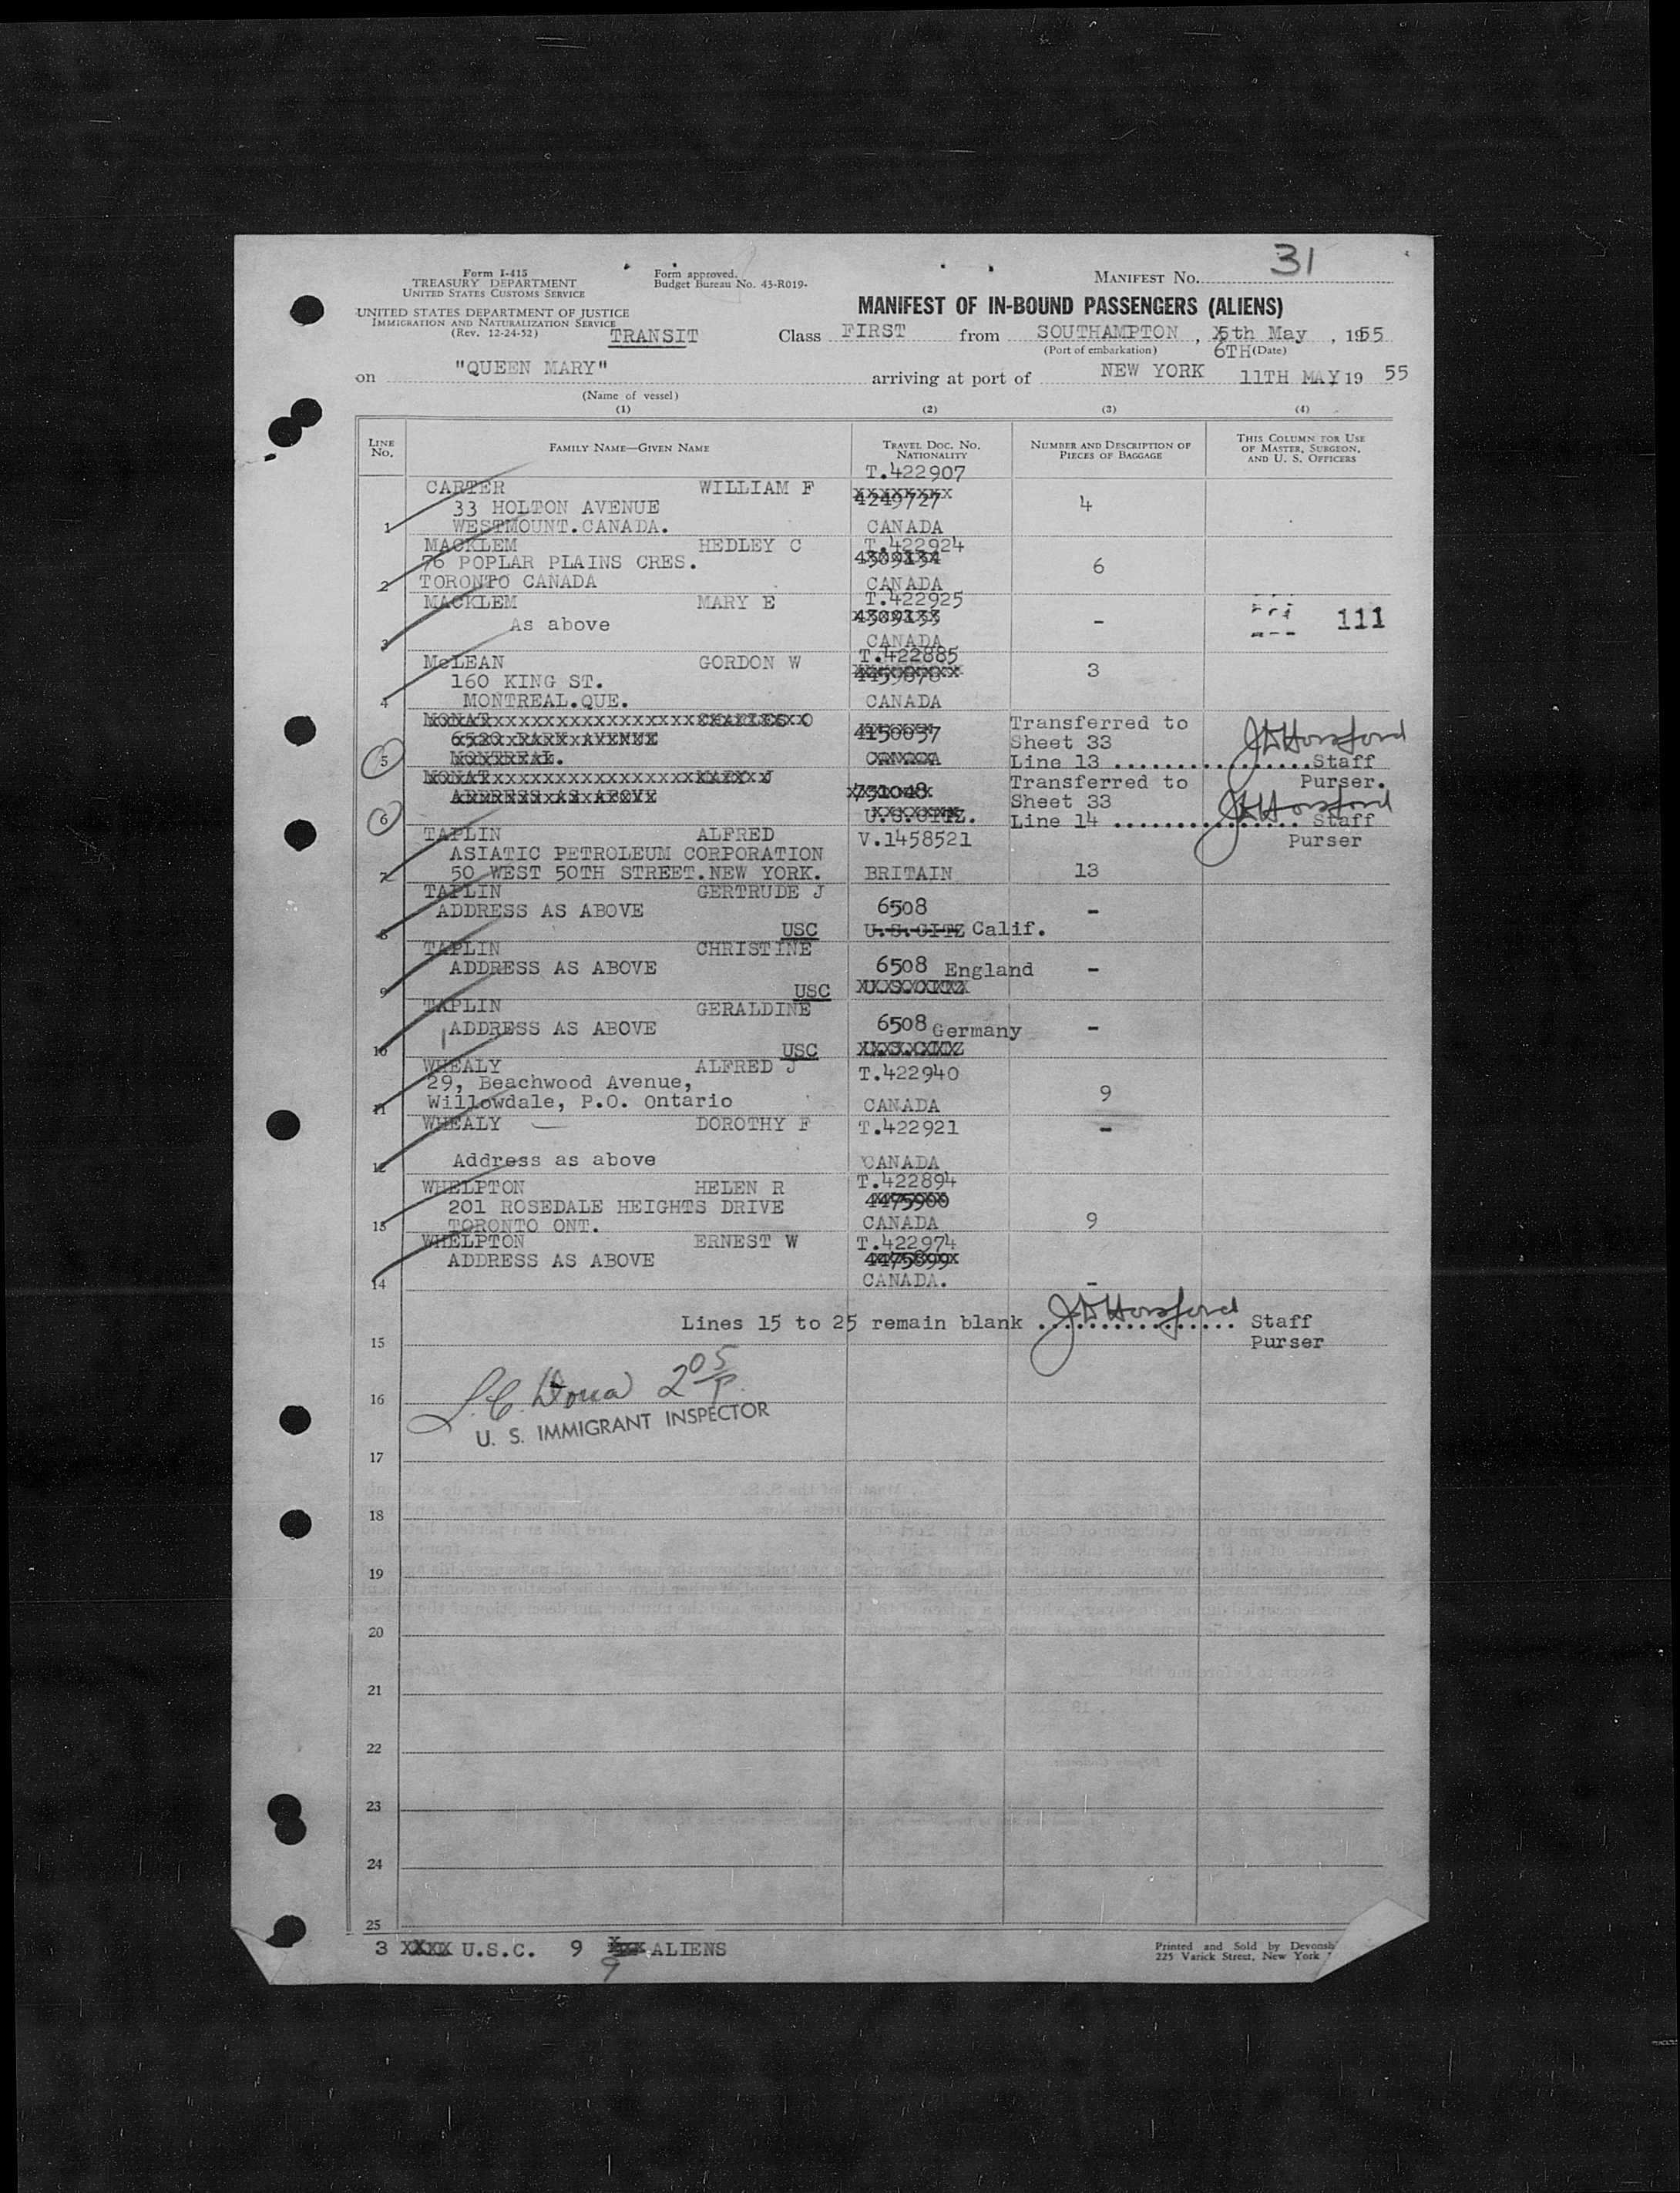 31
Form I-415
TREASURY DEPARTMENT
UNITED STATES CUSTOMS SERVICE
Form approved.
Budget Bureau No. 43-R019-
MANIFEST No.
UNITED STATES DEPARTMENT OF JUSTICE
IMMIGRATION AND NATURALIZATION SERVICE
(Rev. 12-24-52)
TRANSIT
MANIFEST OF IN-BOUND PASSENGERS (ALIENS)
Class FIRST from SOUTHAMPTON, 5th May, 1955
(Port of embarkation) 6TH (Date)
on "QUEEN MARY" arriving at port of NEW YORK 11TH MAY 19 55
(Name of vessel)
(1) (2) (3) (4)
LINE No. FAMILY NAME—GIVEN NAME TRAVEL DOC. NO. NATIONALITY NUMBER AND DESCRIPTION OF PIECES OF BAGGAGE THIS COLUMN FOR USE OF MASTER, SURGEON, AND U. S. OFFICERS
T.422907
CARTER WILLIAM F 4249727
33 HOLTON AVENUE 4
1 WESTMOUNT.CANADA. CANADA
MACKLEM HEDLEY C T.422924
76 POPLAR PLAINS CRES. 6
2 TORONTO CANADA CANADA
MACKLEM MARY E T.422925
As above - 111
3 CANADA
McLEAN GORDON W T.422885
160 KING ST. 3
4 MONTREAL.QUE. CANADA
MONAT CHARLES O 4150037 Transferred to
6520 PARK AVENUE Sheet 33 JDHorsford
5 MONTREAL. CANADA Line 13 ................Staff
MONAT J Transferred to Purser.
ADDRESS AS ABOVE 731048 Sheet 33 JDHorsford
6 U.S.CITZ. Line 14 ............... Staff
TAPLIN ALFRED V.1458521 Purser
ASIATIC PETROLEUM CORPORATION
7 50 WEST 50TH STREET.NEW YORK. BRITAIN 13
TAPLIN GERTRUDE J
ADDRESS AS ABOVE 6508 -
8 USC U.S.CITZ Calif.
TAPLIN CHRISTINE
ADDRESS AS ABOVE 6508 England -
9 USC
TAPLIN GERALDINE
ADDRESS AS ABOVE 6508 Germany -
10 USC
WHEALY ALFRED J T.422940
29, Beachwood Avenue,
11 Willowdale, P.O. Ontario CANADA 9
WHEALY DOROTHY F T.422921 -
12 Address as above CANADA
WHELPTON HELEN R T.422894
201 ROSEDALE HEIGHTS DRIVE 4475900
13 TORONTO ONT. CANADA 9
WHELPTON ERNEST W T.422974
ADDRESS AS ABOVE 4475899
14 CANADA. -
Lines 15 to 25 remain blank JDHorsford ................ Staff
15 Purser
2 05/P.
16
U. S. IMMIGRANT INSPECTOR
17
18
19
20
21
22
23
24
25
3 U.S.C. 9 ALIENS
9
Printed and Sold by
225 Varick Street, New York